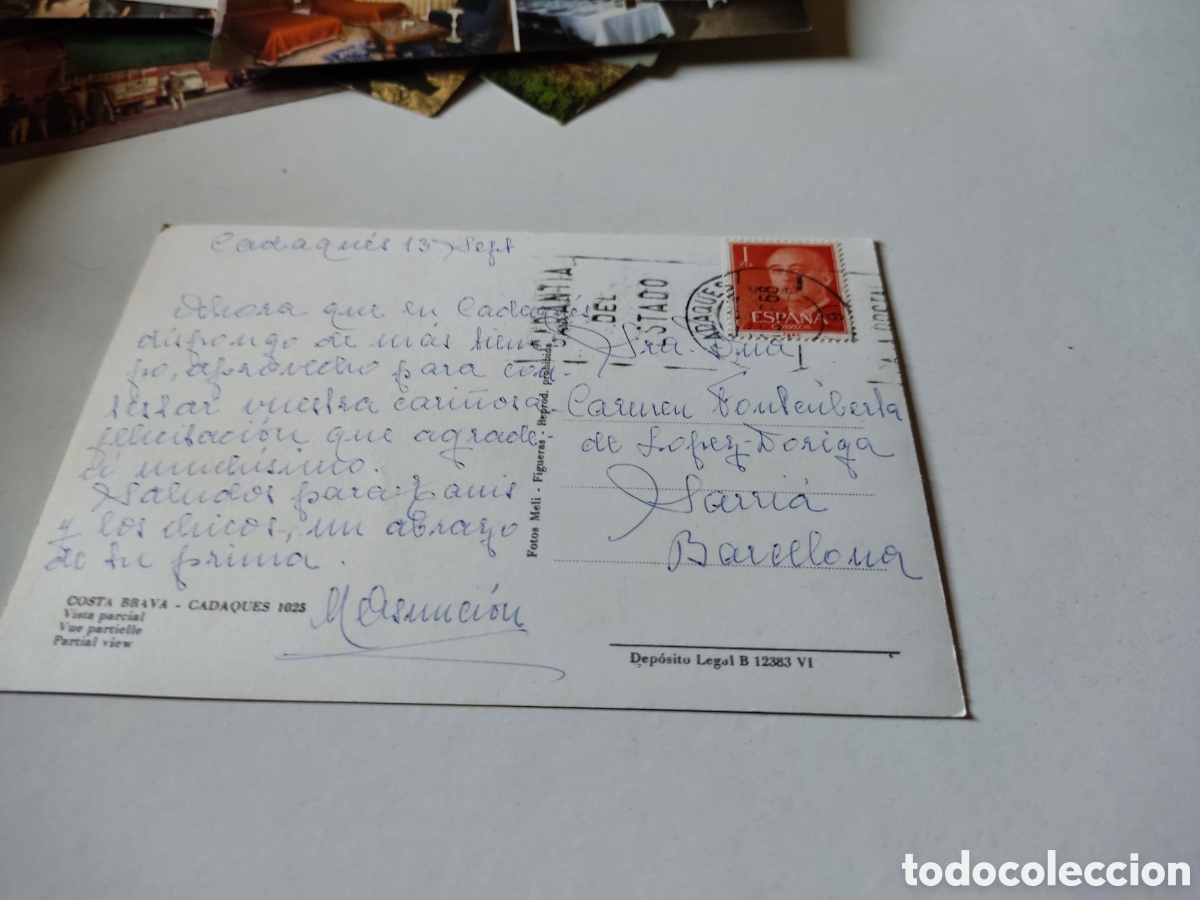 Cadaqués 13 Sept
Ahora que en Cadaqués
dispongo de más tiem
po, aprovecho para con
testar vuestra cariñosa
felicitación que agrade
cí muchísimo.
Saludos para Juanis
y los chicos, un abrazo
de tu prima.
Mª Asunción
COSTA BRAVA - CADAQUES 1025
Vista parcial
Vue partielle
Partial view
Fotos Meli - Figueras - Reprod. prohibida
GARANTIA
DEL
ESTADO
CADAQUES
68
1
PTA
ESPAÑA
CORREOS
Sra. Dña
Carmen Fontcuberta
de Lopez-Doriga
Sarriá
Barcelona
Depósito Legal B 12383 VI
todocoleccion